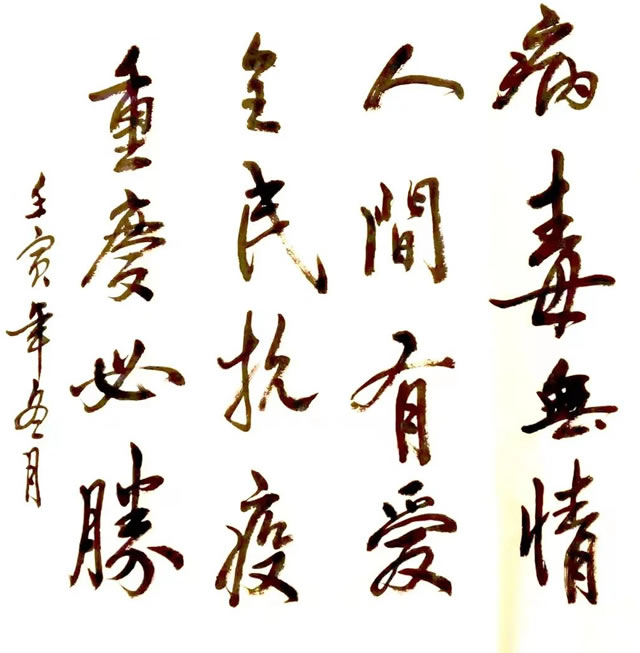 病毒無情
人間有愛
全民抗疫
重慶必勝
壬寅年冬月